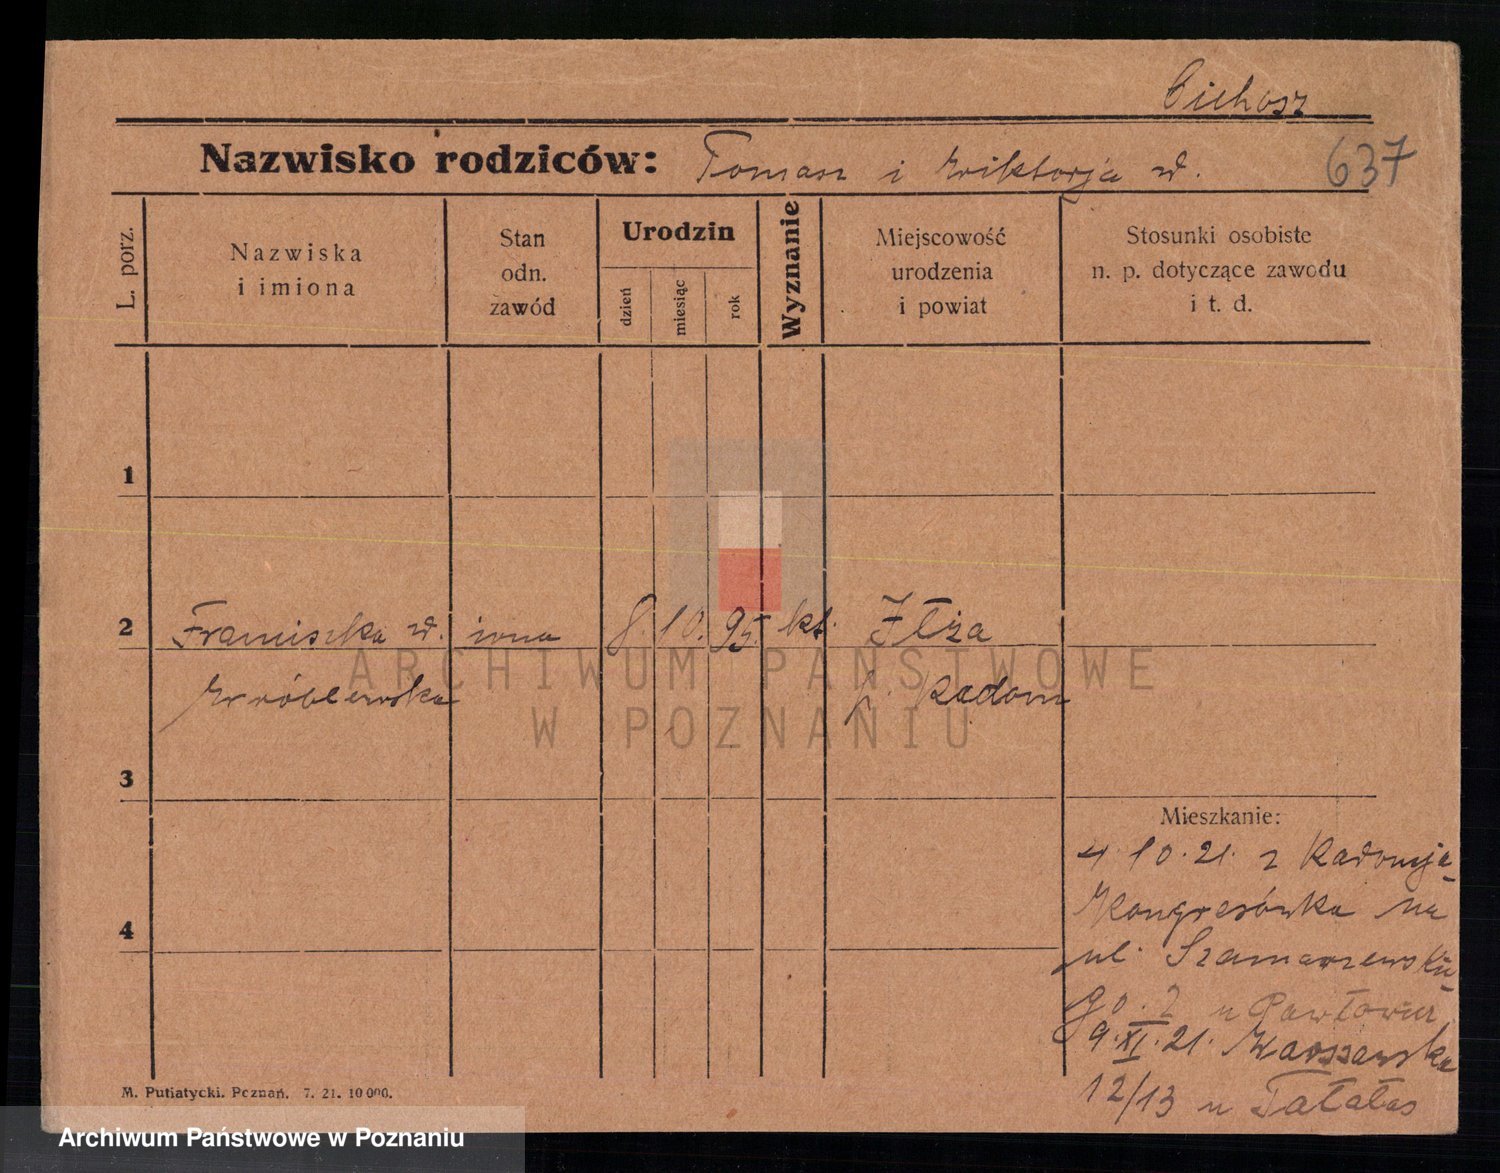 Cichosz
Nazwisko rodziców: Tomasz i Wiktorja W.
637
L. porz.
Nazwiska
i imiona
Stan
odn.
zawód
Urodzin
dzień
miesiąc
rok
Wyznanie
Miejscowość
urodzenia
i powiat
Stosunki osobiste
n. p. dotyczące zawodu
i t. d.
1
2 Franciszka W. żona 8. 10. 95. kt. Iłża
Wróblewska p. Radom
ARCHIWUM PAŃSTWOWE
W POZNANIU
3
Mieszkanie:
4
4. 10. 21. z Radomja
Kongresówka na
ul. Szamarzewskie
go 2 u
9. XI. 21. Warszawska
12/13 u Tałałas
M. Putiatycki. Poznań. 7. 21. 10 000.
Archiwum Państwowe w Poznaniu